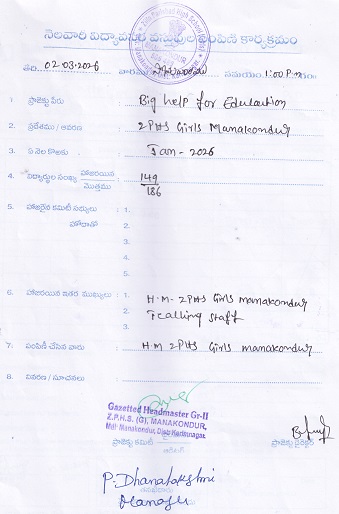 నెలవారి విద్యావసర వస్తువుల పంపిణి కార్యక్రమం
తేది. 02-03-2026 వారము సమయం 1:00 P.m
1 ప్రాజెక్టు పేరు : Big help for Education
2. ప్రదేశము / ఆవరణ : ZPHS Girls Manakondur
3. ఏ నెల కొఱకు : Jan - 2026
4. విద్యార్థుల సంఖ్య హాజరయిన / మొత్తము : 149 / 186
5. హాజరైన కమిటీ సభ్యులు : 1.
హోదాతో 2.
3.
4.
5.
6. హాజరయిన ఇతర ముఖ్యులు : 1. H.M - ZPHS Girls manakondur
2. Teaching staff
3.
7. పంపిణీ చేసిన వారు : H.M ZPHS Girls manakondur
8. వివరణ / సూచనలు :
Gazetted Headmaster Gr-II
Z.P.H.S. (G), MANAKONDUR,
Mdl: Manakondur, Dist: Karimnagar.
ప్రాజెక్టు కమిటీ ప్రాజెక్టు డైరెక్టర్
P. Dhanalakshmi
Manager